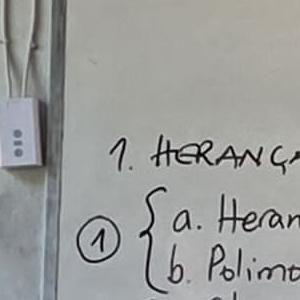 1. HERANÇA
① { a. Heran
b. Polimo